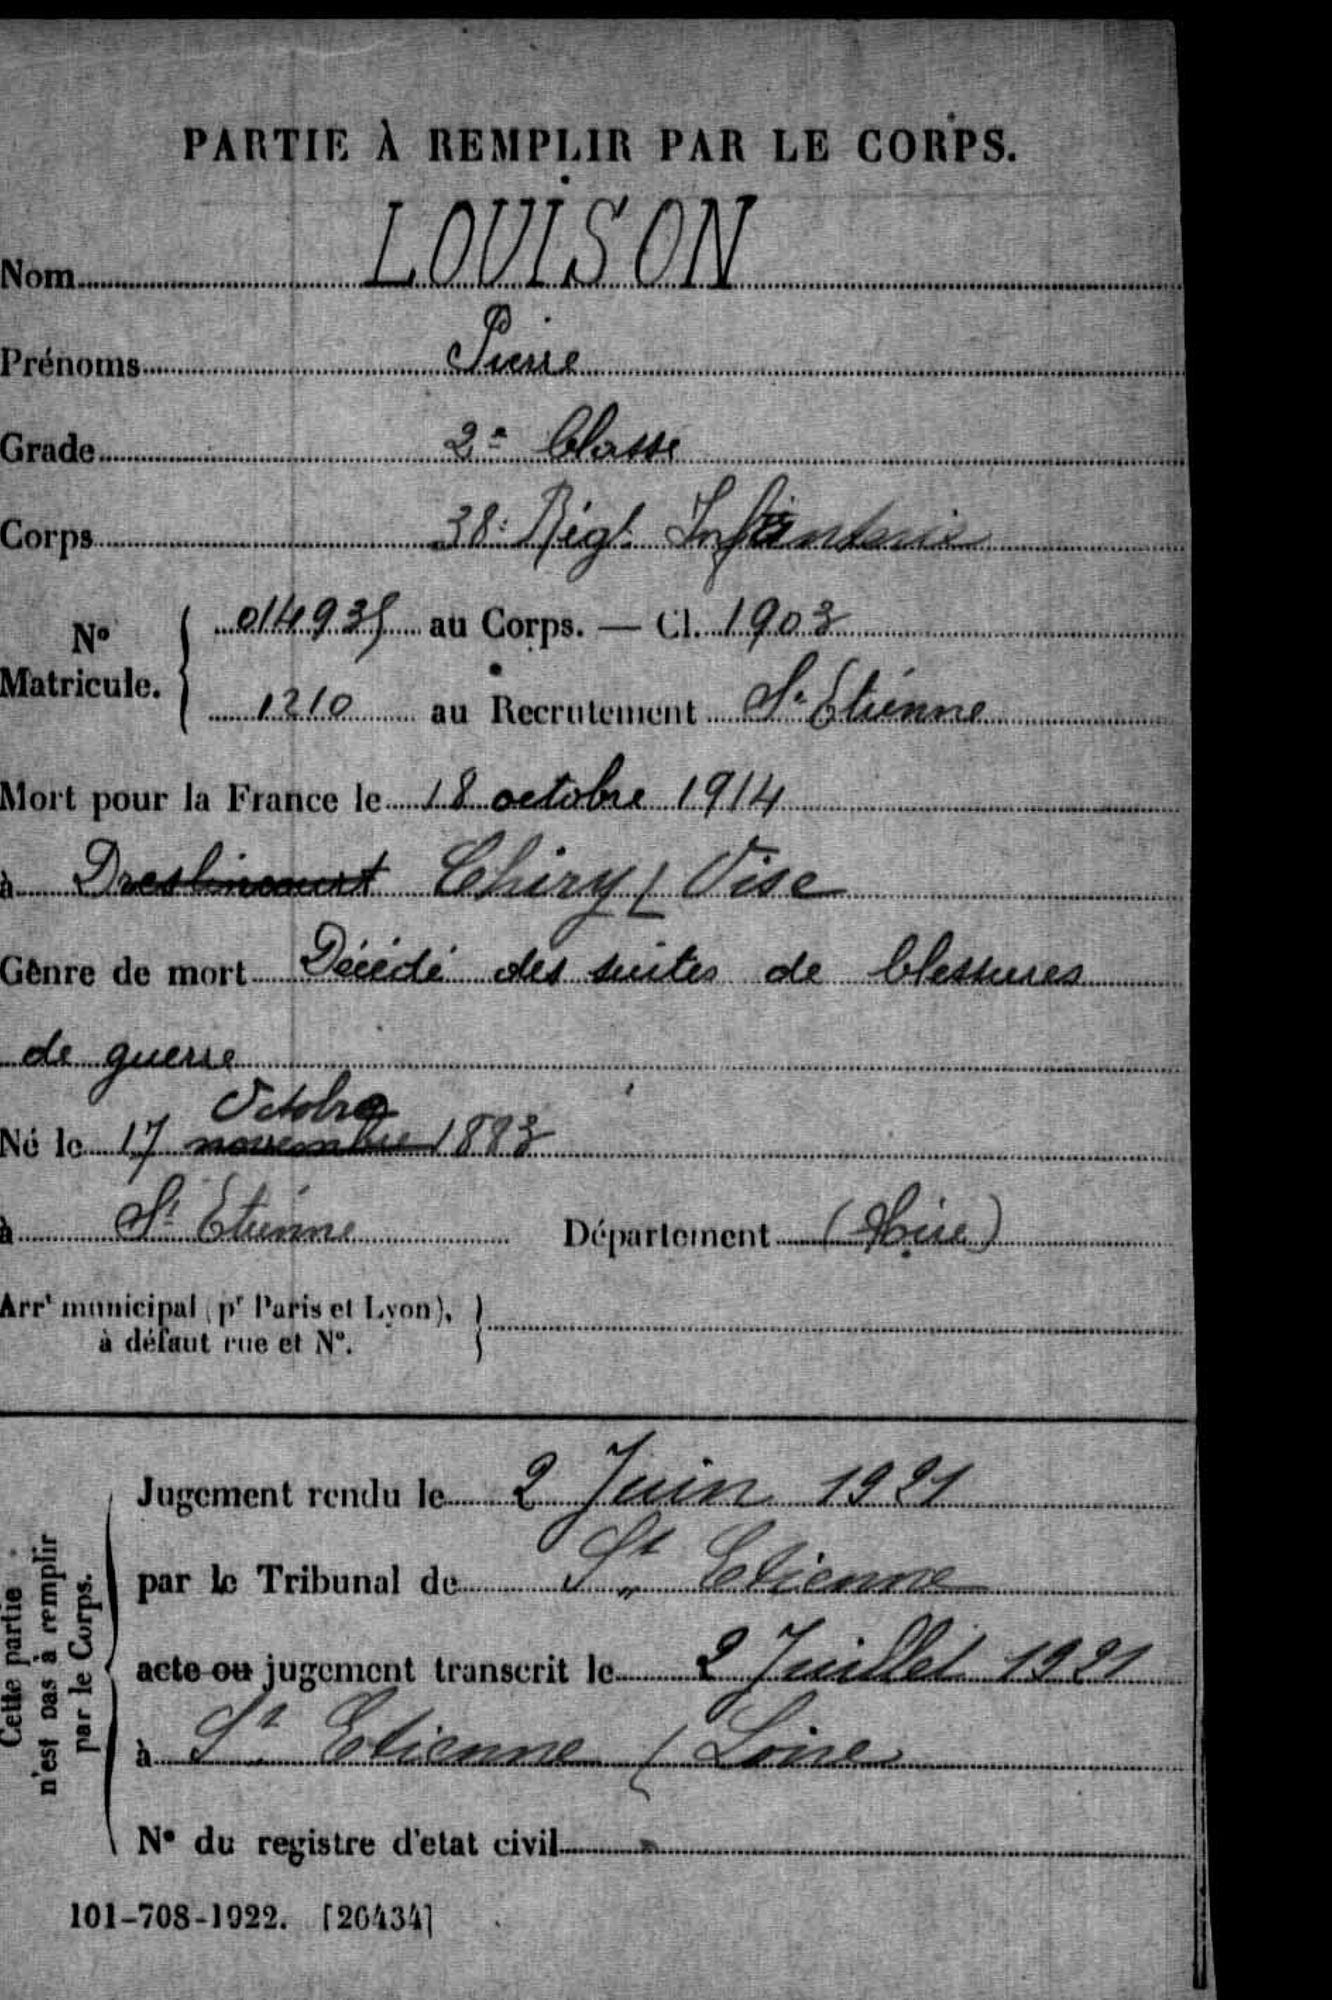 PARTIE À REMPLIR PAR LE CORPS.
Nom LOUISON
Prénoms Pierre
Grade 2e Classe
Corps 38e Régt Infanterie
No Matricule. 014935 au Corps. — Cl. 1903
1210 au Recrutement St Etienne
Mort pour la France le 18 octobre 1914
à Dreslincourt Chiry / Oise
Genre de mort Décédé des suites de blessures
de guerre
Octobre
Né le 17 novembre 1883
à St Etienne Département (Loire)
Arrt municipal (pr Paris et Lyon),
à défaut rue et No.
Jugement rendu le 2 Juin 1921
par le Tribunal de St Etienne
acte ou jugement transcrit le 2 Juillet 1921
à St Etienne (Loire
No du registre d'etat civil
Cette partie
n'est pas à remplir
par le Corps.
101-708-1922. [26434]